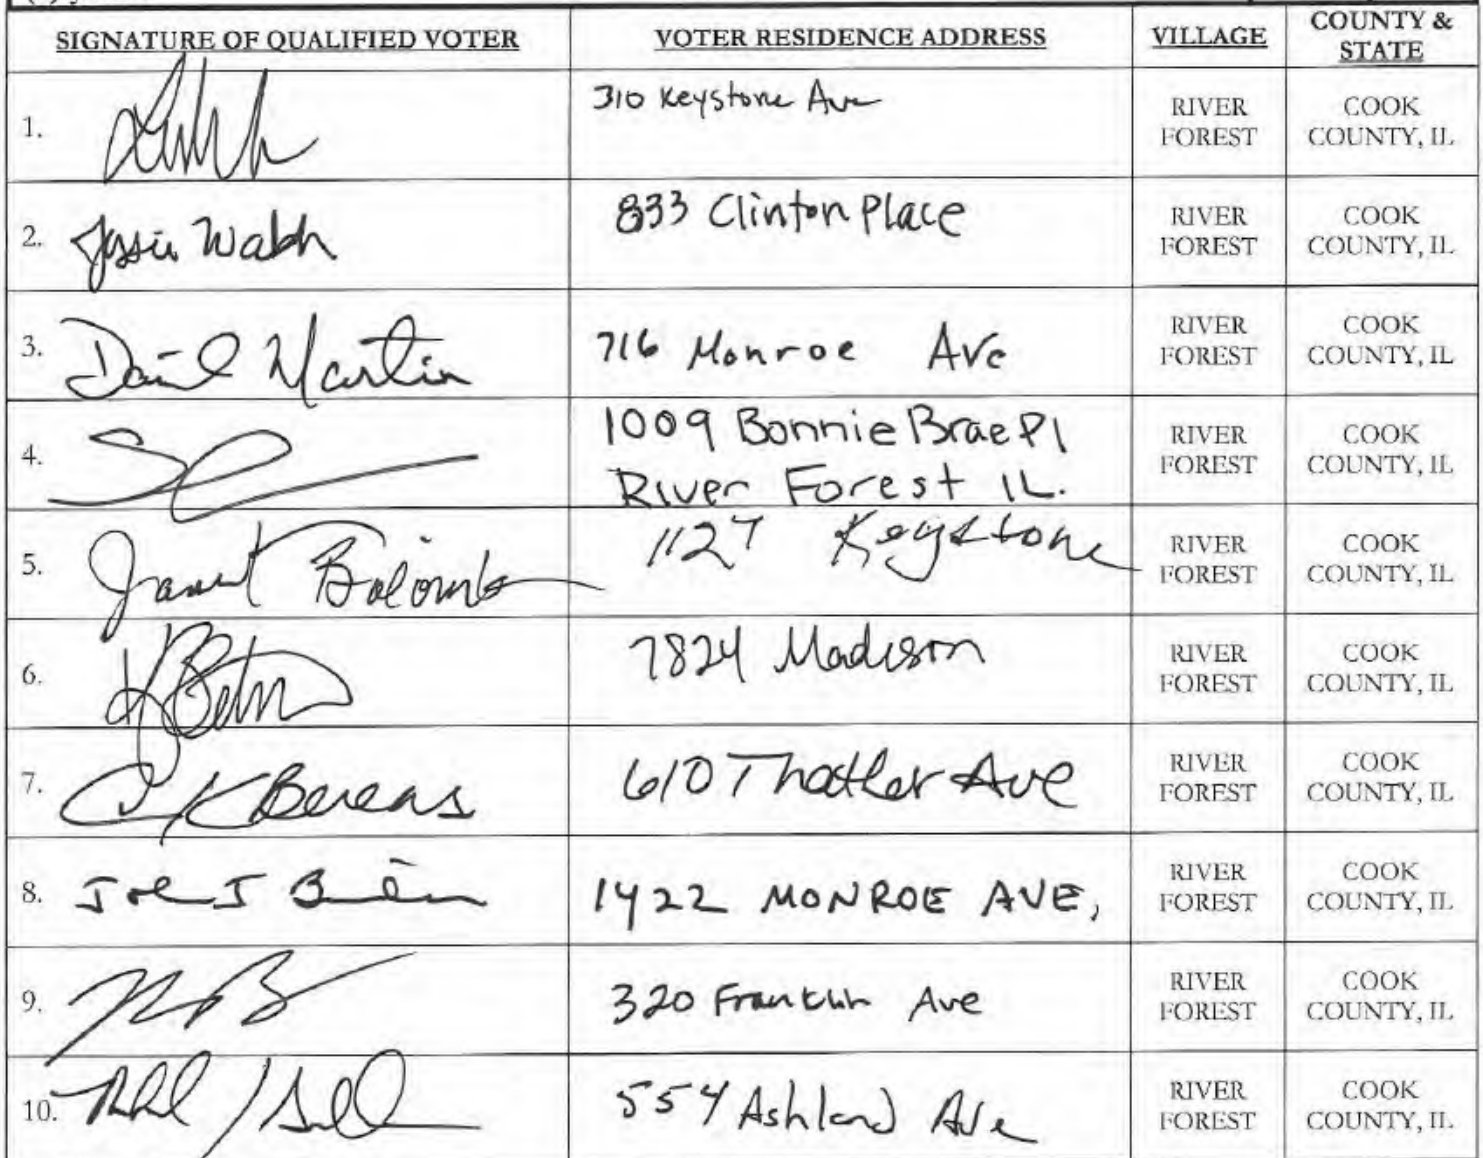 SIGNATURE OF QUALIFIED VOTER VOTER RESIDENCE ADDRESS VILLAGE COUNTY & STATE
1. 310 Keystone Ave RIVER FOREST COOK COUNTY, IL
2. Josie Walsh 833 Clinton Place RIVER FOREST COOK COUNTY, IL
3. Daniel Martin 716 Monroe Ave RIVER FOREST COOK COUNTY, IL
4. 1009 Bonnie Brae Pl RIVER FOREST COOK COUNTY, IL
River Forest IL.
5. Janet 1127 Keystone RIVER FOREST COOK COUNTY, IL
6. 7824 Madison RIVER FOREST COOK COUNTY, IL
7. 610 Thatcher Ave RIVER FOREST COOK COUNTY, IL
8. 1422 MONROE AVE, RIVER FOREST COOK COUNTY, IL
9. 320 Franklin Ave RIVER FOREST COOK COUNTY, IL
10. 554 Ashland Ave RIVER FOREST COOK COUNTY, IL